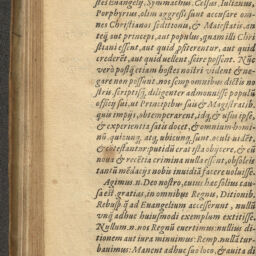 stes Euangelij, Symmachus, Celsus, Iulianus,
Porphyrius, olim aggressi sunt accusare om-
nes Christianos seditionū, & Maiestatis: an-
teq̃ aut princeps, aut populus, quam illi Chri
stiani essent, aut quid ꝓfiterentur, aut quid
crederēt, aut quid uellent scire possent. Nūc
verò postq̃ etiam hostes nostri vident & ne-
gare non possunt, nos semp omnibus dictis no
stris scriptisq́;, diligenter admonuisse populū
officij sui, ut Principibus suis & Magistratib.
quis impijs, obtemperarent, idq́; & usus ipse,
& experientia satis docet, & omnium homi-
nū. quicunq̃, atq̃ ubicunq̃, sunt, oculi uidēt,
& cōtestantur: putidū erat ista obijcere, & cū
noua & recētia crimina nulla essent, obsoletis
tantū mēdacijs nobis inuidiā facere uoluisse.
Agimus n. Deo nostro, cuius hæc solius cau
sa est, gratias, in omnibus Regnis, Ditionib.
Rebusq̃ p̄ ad Euangelium accesserunt, nullū
unq̃ adhuc huiusmodi exemplum extitisse.
Nullum n. nos Regnū euertimus: nullius di-
tionem aut iura minuimus: Remp. nullā tur-
bauimus: Manent adhuc suo loco, & auita di